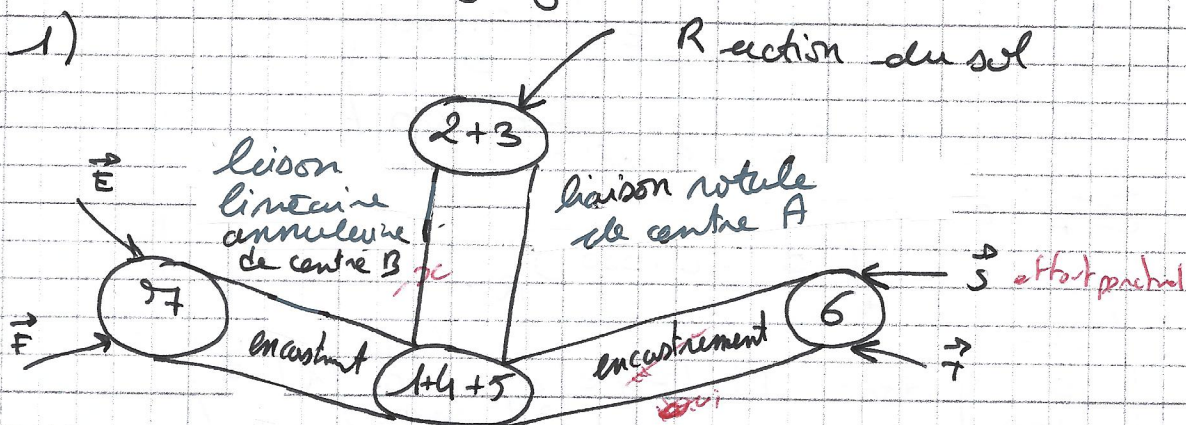 1)
R action du sol
2+3
E
liison
linéaire
annulaire
de centre B x
liaison rotule
de centre A
S effort ponctuel
7
6
F
encastrmt
encastrement
T
1+4+5
oui